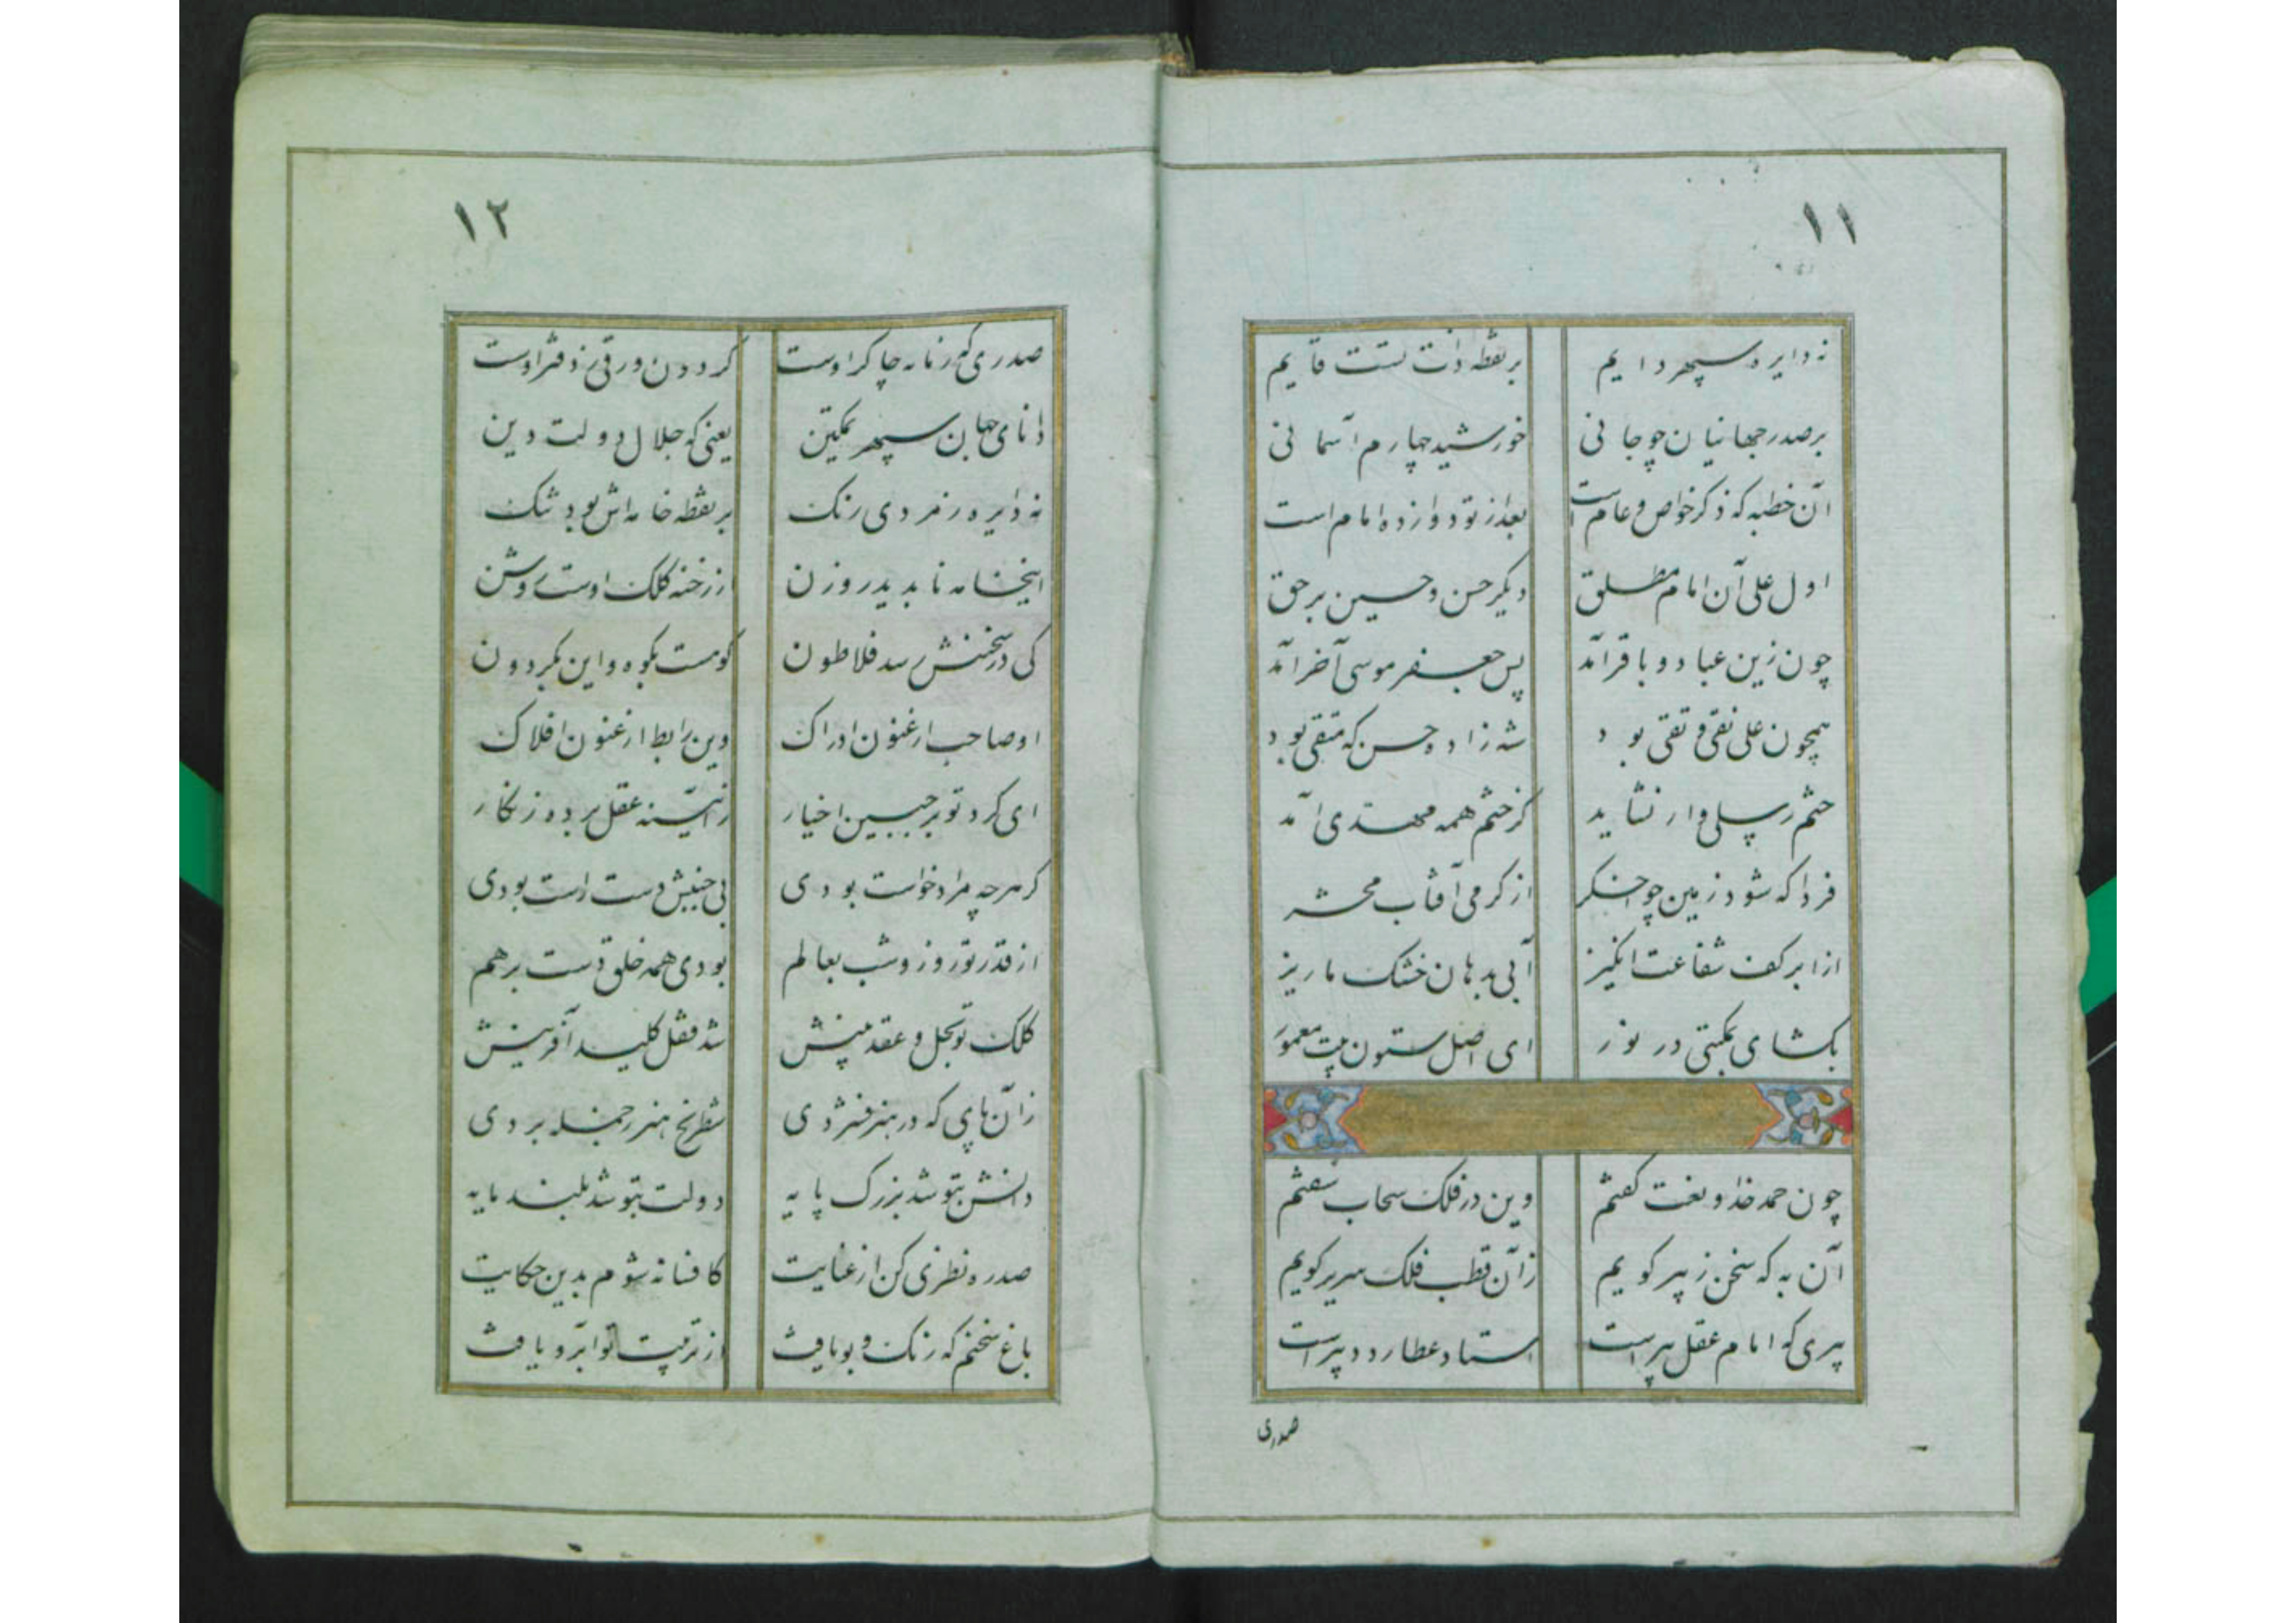 ۱۱
نه دایره سپهر دایم بر نقطه ذات تست قایم
بر صدر جهانیان چو جانی خورشید چهارم آسمانی
آن خطبه که ذکر خواص و عام است بعد از تو دوازده امام است
اول علی آن امام مطلق دیگر حسن و حسین برحق
چون زین عباد و باقر آمد پس جعفر موسی آخر آمد
همچون علی نقی و تقی بود شه زاده حسن که متقی بود
ختم رسلی وار نشاید کز ختم همه مهدی آمد
فردا که شود زمین چو اخگر از گرمی آفتاب محشر
از ابر کف شفاعت انگیز آبی بدهان خشک ما ریز
بگشای بمکتبی در نور ای اصل ستون بیت معمور
چون حمد خدا و نعت گفتم وین در فلک سحاب سفتم
آن به که سخن ز پیر گویم زان قطب فلک سریر گویم
پیری که امام عقل پیر است استاد عطارد دبیر است
صدری
۱۲
صدری که زمانه چاکر اوست گردون ورقی ز دفتر اوست
دانای جهان سپهر تمکین یعنی که جلال دولت و دین
نه دایره زمردی رنگ بر نقطه خامه‌اش بود تنگ
اینخانه ناپدید روزن از رخنه کلک اوست روشن
کی در سخنش رسد فلاطون کومست بکوه و این بگردون
او صاحب ارغنون ادراک وین رابط ارغنون افلاک
ای گرد تو بر جبین اخیار ز آیینه عقل برده زنگار
گر هرچه مراد خواست بودی بی جنبش دست راست بودی
از قدر تو روز و شب بعالم بودی همه خلق دست برهم
کلک تو بحل و عقد بینش شد قفل کلید آفرینش
زان پای که در هنر فشردی شطرنج هنر ز جمله بردی
دانش بتو شد بزرگ پایه دولت بتو شد بلند مایه
صدره نظری کن از عنایت کافسانه شوم بدین حکایت
باغ سخنم که رنگ و بو یافت از تربیت تو آبرو یافت